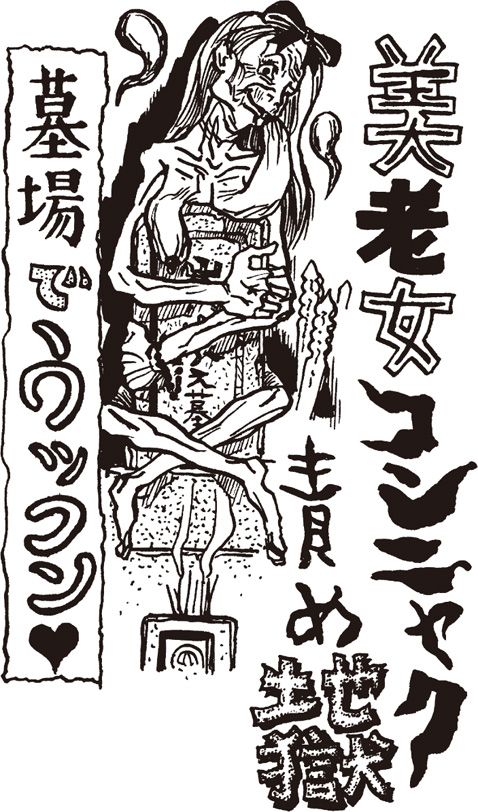 美老女コンニャク
責め
地獄
墓場でワッフン♥